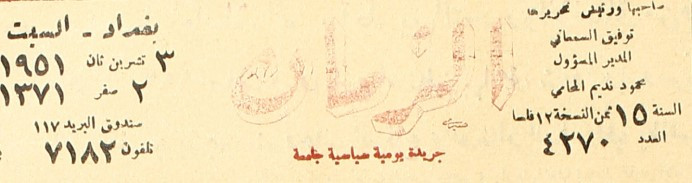 صاحبها ورئيس تحريرها
توفيق السمعاني
المدير المسؤول
محمود نديم المحامي
السنة ١٥ ثمن النسخة ١٢ فلسا
العدد ٤٢٧٠
الزمان
جريدة يومية سياسية جامعة
بغداد - السبت
٣ تشرين ثان ١٩٥١
٢ صفر ١٣٧١
صندوق البريد ١١٧
تلفون ٧١٨٢